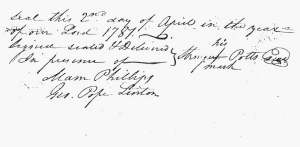 seal this 2nd day of April in the year
of our Lord 1787
signed sealed & Delivered his
In presence of Potts seal
mark
Mam Phillips
Geo. Pope Linton